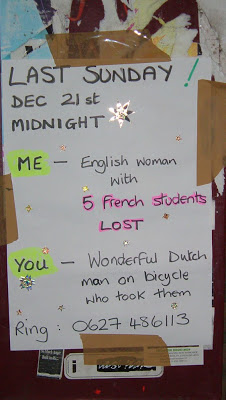 LAST SUNDAY!
DEC 21st
MIDNIGHT
ME – English woman
with
5 French students
LOST
You – Wonderful Dutch
man on bicycle
who took them
Ring : 0627 486113